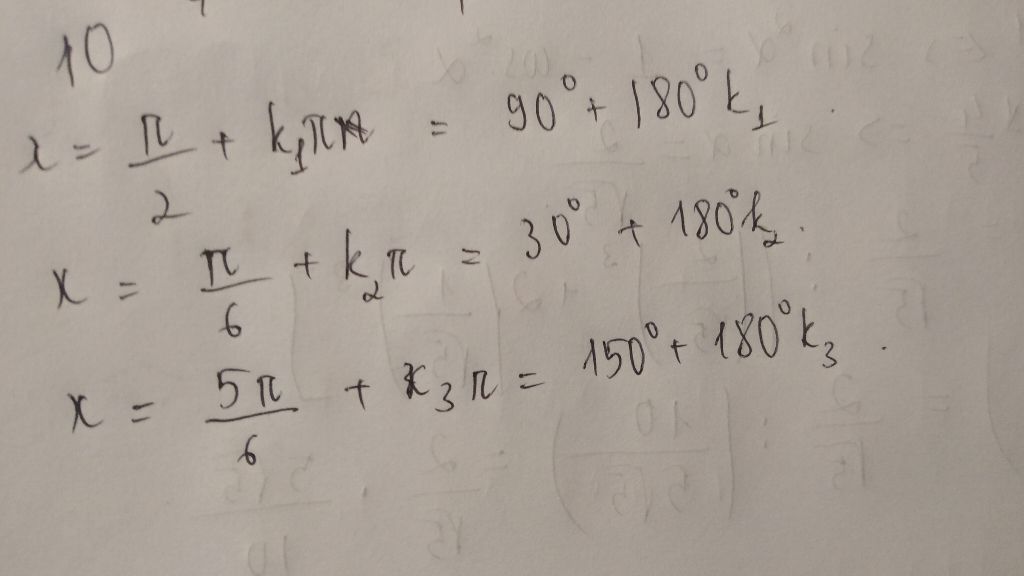 10
x = π/2 + k₁π = 90° + 180° k₁.
x = π/6 + k₂π = 30° + 180° k₂.
x = 5π/6 + k₃π = 150° + 180° k₃.